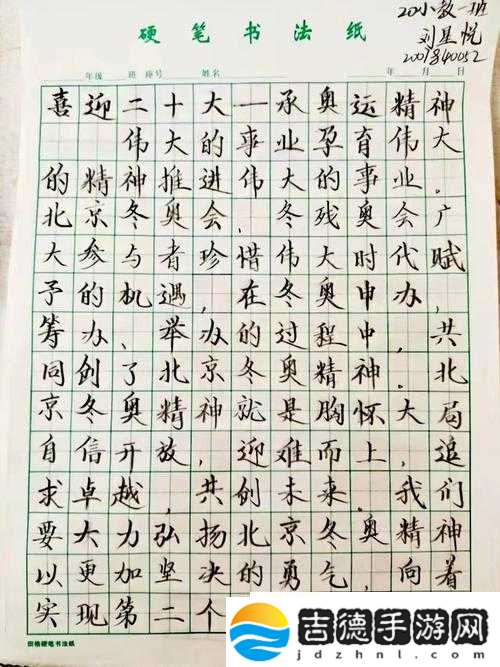 20小教一班
刘星悦
硬笔书法纸
年级 班 座号 姓名 年 月 日
喜迎二十大—承奥运精神
伟大的事业孕育伟大
的精神推进伟大的事业。
北京冬奥会、冬残奥会广
大参与者珍惜伟大时代赋
予的机遇,在冬奥申办,
筹办、举办的过程中,共
同创了北京冬奥精神。北
京冬奥精神就是胸怀大局
自信开放,迎难而上,追
求卓越,共创未来。我们
要大力弘扬北京冬奥精神
以更加坚决的勇气,向着
实现第二个
田格硬笔书法纸
吉德手游网
jdzhnl.com